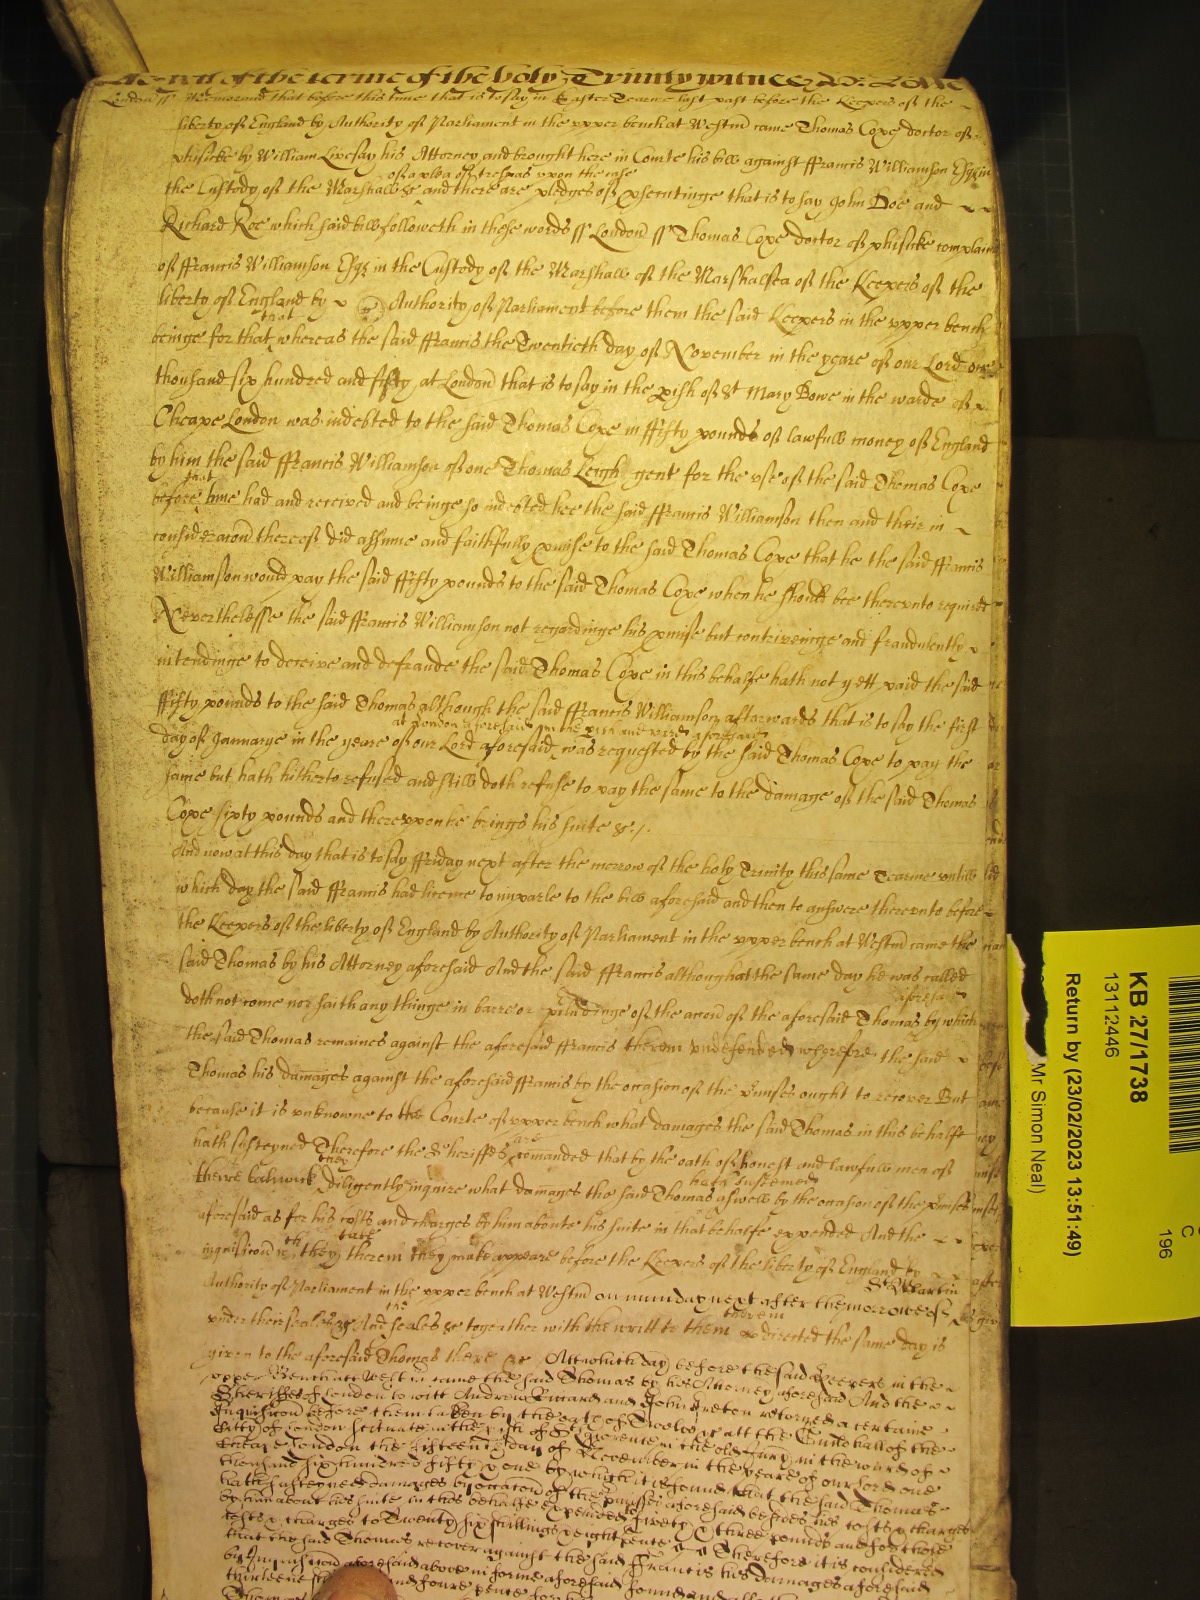 of the terme of the holy Trinity witnes
London ss Memorand that before this time that is to say in Easter Tearme last past before the Keepers of the
liberty of England by Authority of Parliament in the upper bench at Westm̄ came Thomas Coxe doctor of
phisicke by William Livesay his Attorney and brought here in Courte his bill against ffrancis Williamson Esqr in
of a plea of trespas upon the case
the Custody of the Marshall &c and there are pledges of prosecutinge that is to say John Doe and
Richard Roe which said bill followeth in these words ss London ss Thomas Coxe doctor of phisicke complaines
of ffrancis Williamson Esqr in the Custody of the Marshall of the Marshalsea of the Keepers of the
liberty of England by Authority of Parliament before them the said Keepers in the upper bench
that
beinge for that whereas the said ffrancis the Twentieth day of November in the yeare of our Lord one
thousand six hundred and fifty at London that is to say in the pish of St Mary Bowe in the warde of
Cheape London was indebted to the said Thomas Coxe in ffifty pounds of lawfull money of England
by him the said ffrancis Williamson of one Thomas Leigh gent for the use of the said Thomas Coxe
that
before time had and received and beinge so indebted hee the said ffrancis Williamson then and their in
consideracon thereof did assume and faithfully pmise to the said Thomas Coxe that he the said ffrancis
Williamson would pay the said ffifty pounds to the said Thomas Coxe when he should bee thereunto required
Neverthelesse the said ffrancis Williamson not regardinge his pmise but contriveinge and fraudulently
intendinge to deceive and defraude the said Thomas Coxe in this behalfe hath not yett paid the said
ffifty pounds to the said Thomas although the said ffrancis Williamson afterwards that is to say the first
at London aforesaid in the pish and ward aforesaid
day of Januarye in the yeare of our Lord aforesaid was requested by the said Thomas Coxe to pay the
same but hath hitherto refused and still doth refuse to pay the same to the damage of the said Thomas
Coxe sixty pounds and thereupon he brings his suite &c
And now at this day that is to say ffriday next after the morrow of the holy Trinity this same Tearme untill
which day the said ffrancis had licence to imparle to the bill aforesaid and then to answere thereunto before
the Keepers of the liberty of England by Authority of Parliament in the upper bench at Westm̄ came the
said Thomas by his Attorney aforesaid And the said ffrancis although at the same day he was called
aforesaid
doth not come nor saith any thinge in barre or pcludinge of the accon of the aforesaid Thomas by which
the said Thomas remaines against the aforesaid ffrancis therein undefended wherefore the said
Thomas his damages against the aforesaid ffrancis by the occasion of the pmises ought to recover But
because it is unknowne to the Courte of upper bench what damages the said Thomas in this behalfe
are
hath susteyned Therefore the Sheriffes comanded that by the oath of honest and lawfull men of
they hath susteened
theire baliwick diligently inquire what damages the said Thomas aswell by the occasion of the pmises
aforesaid as for his costs and charges by him aboute his suite in that behalfe expended And the
th take
inquisicon wch they therein they make appeare before the Keepers of the liberty of England by
St Martin
Authority of Parliament in the upper bench at Westm̄ on munday next after the morrowe of
the therein
under their seales &c And seales &c together with the writt to them directed the same day is
given to the aforesaid Thomas there &c At which day before the said Keepers in the
upper Bench att Westm̄ came the said Thomas by his Attorney aforesaid And the
Sheriffes of London to witt Andrew Ricard and John Ireton returned a certaine
Inquisicon before them taken by the oath of Twelve att the Guildhall of the
Citty of London scituate in the pish of St Lawrence in the old Jury in the ward of
Cheape London the fifteenth day of November in the yeare of our Lord one
thousand six hundred fifty & one by which it is found that the said Thomas
hath susteyned damages by occacon of the pmisses aforesaid besides his costs & charges
by him about his suite in this behalfe expended to fivety & three pounds and for those
costs & charges to Twenty six shillings & eight pence Therefore it is considered
that the said Thomas recover against the said Francis his damages aforesaid
by Inquisicon aforesaid above in forme aforesaid found and
thirteene and foure pence for
KB 27/1738
13112446
Return by (23/02/2023 13:51:49)
Mr Simon Neal)
C
196